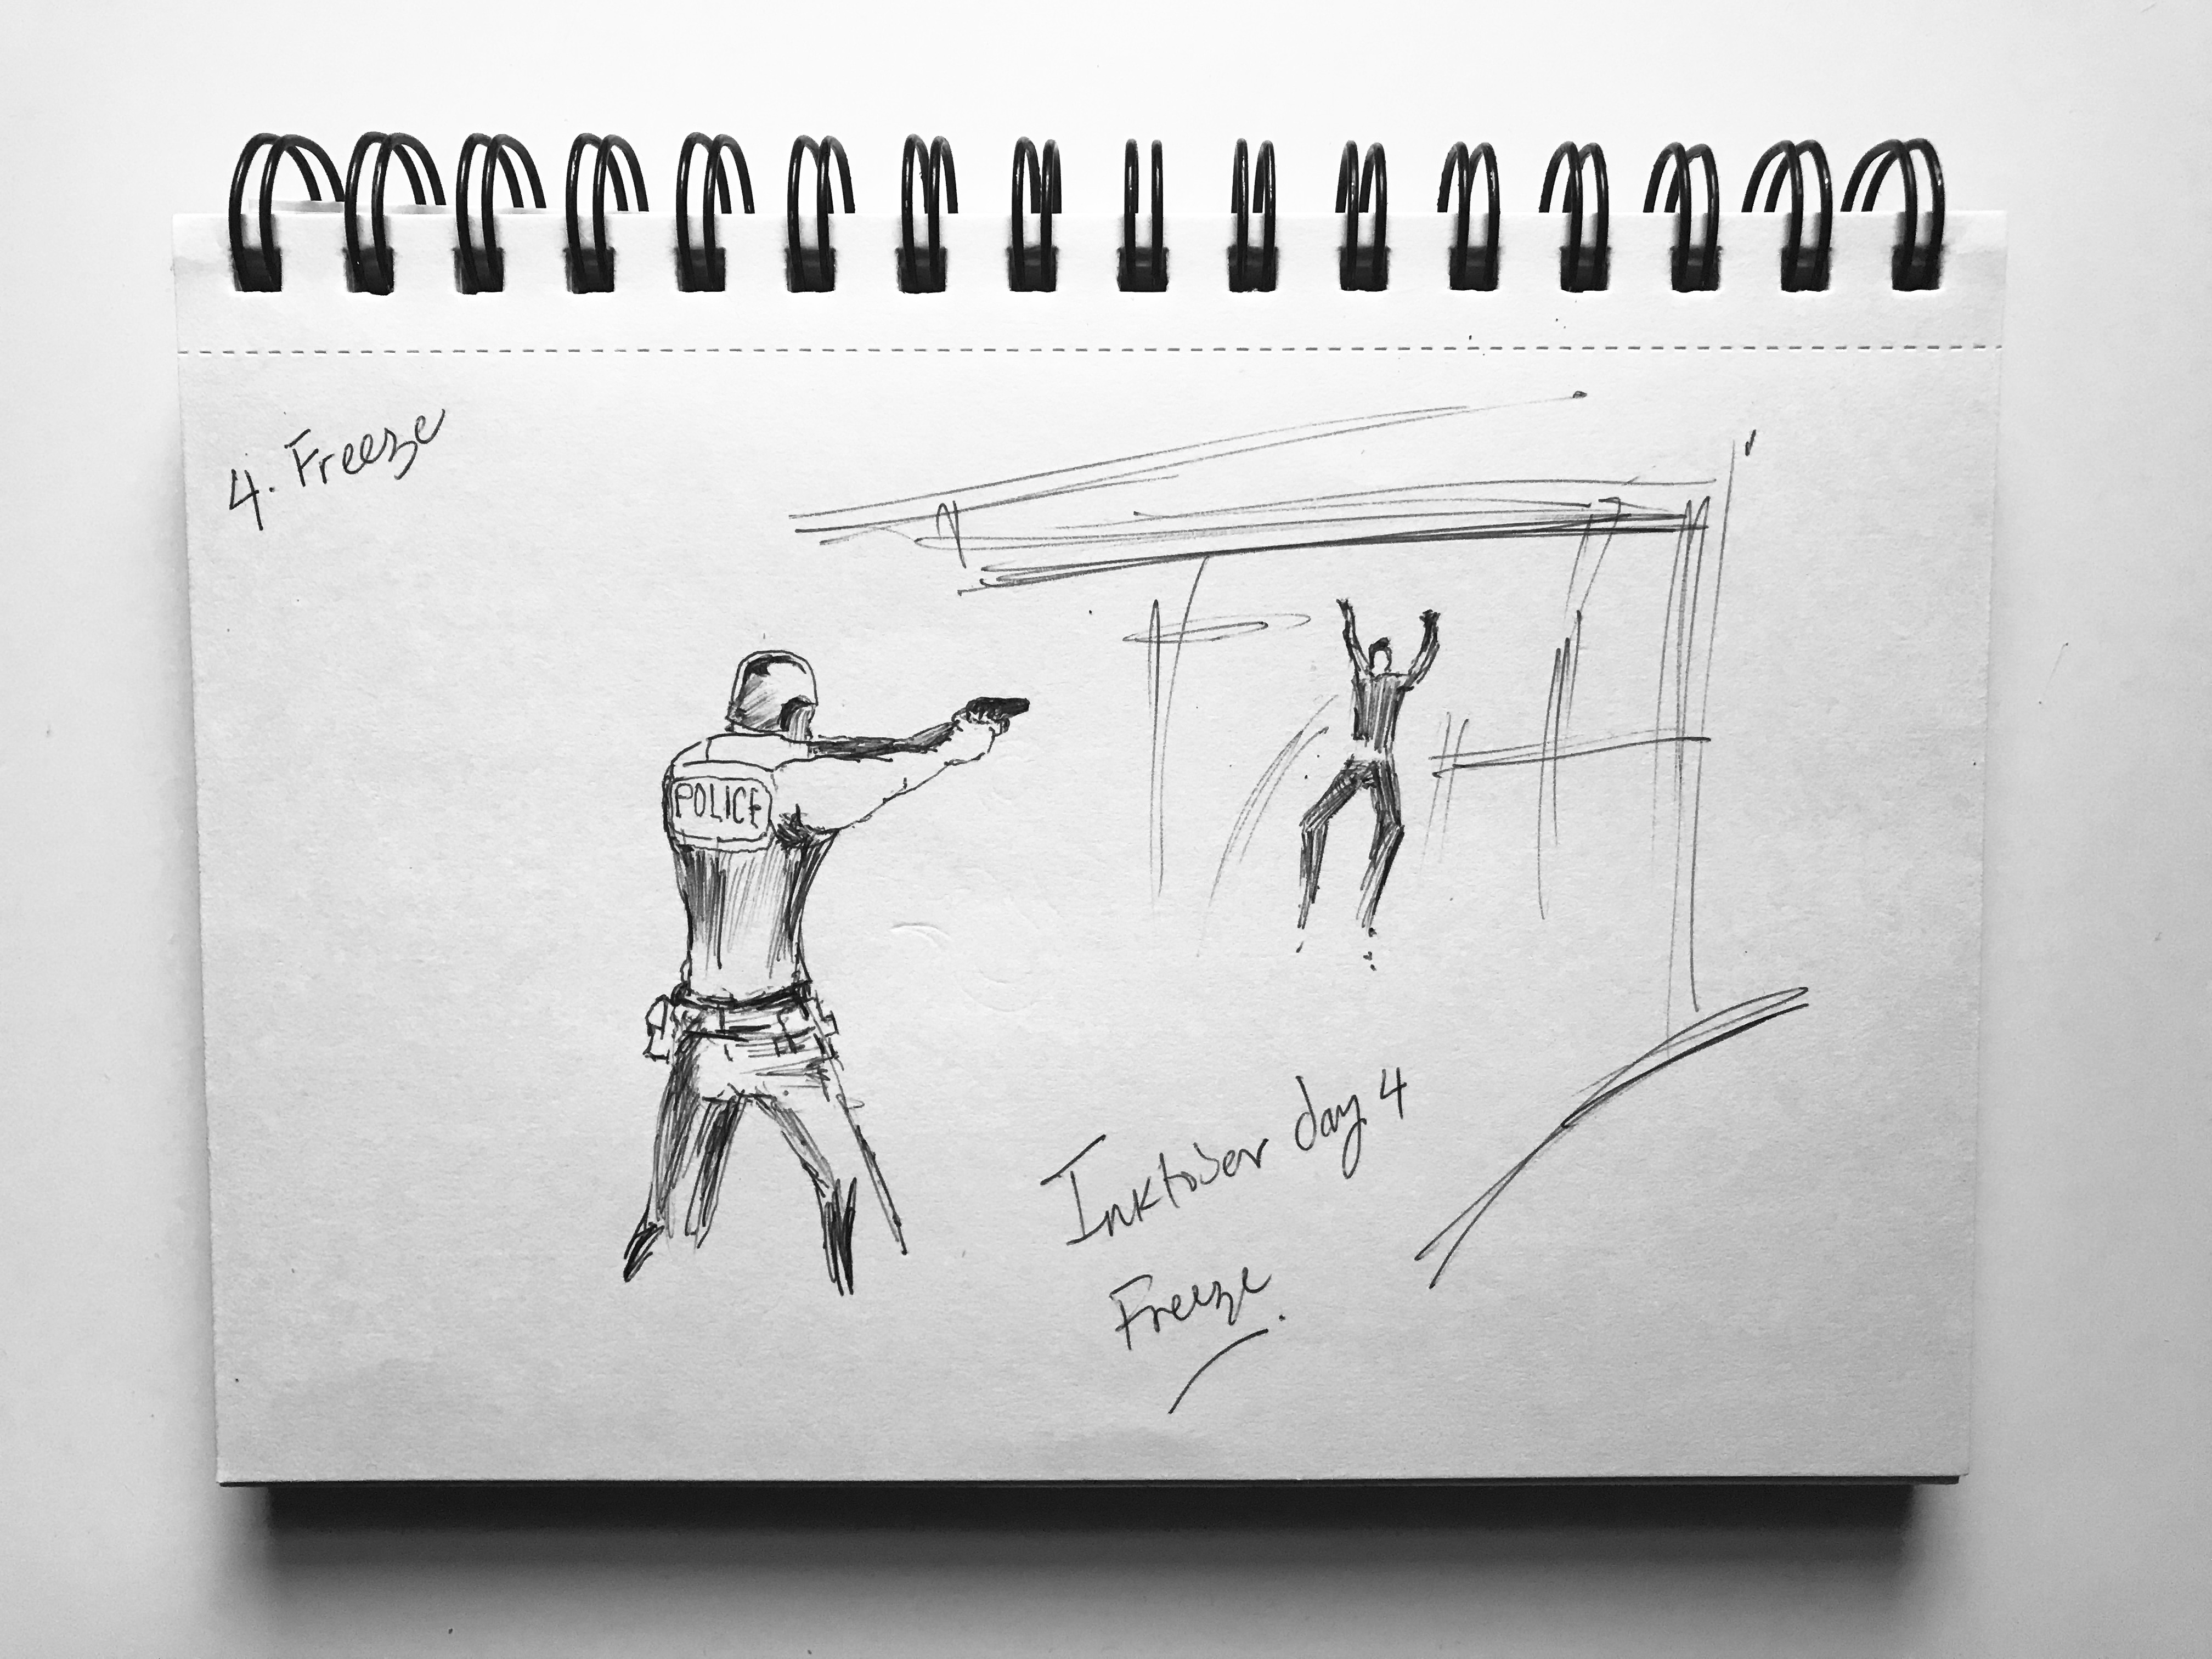 4. Freeze
POLICE
Inktober day 4
Freeze.